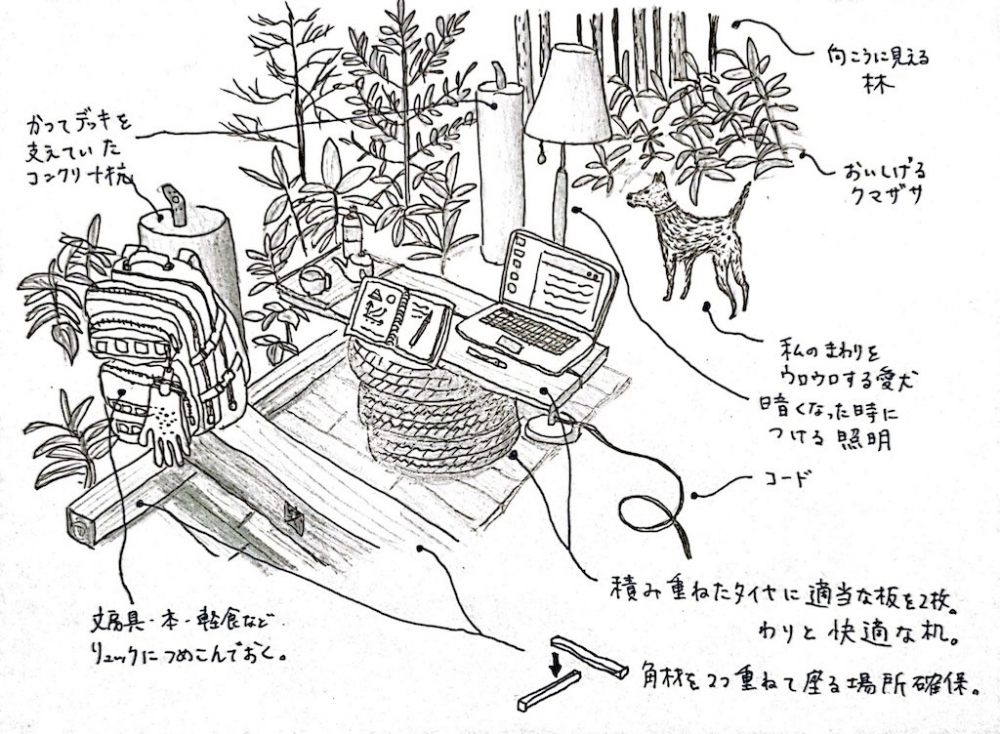 向こうに見える
林
かつてデッキを
支えていた
コンクリート杭
おいしげる
クマザサ
私のまわりを
ウロウロする愛犬
暗くなった時に
つける照明
コード
積み重ねたタイヤに適当な板を2枚。
わりと快適な机。
文房具・本・軽食など
リュックにつめこんでおく。
角材を2つ重ねて座る場所確保。